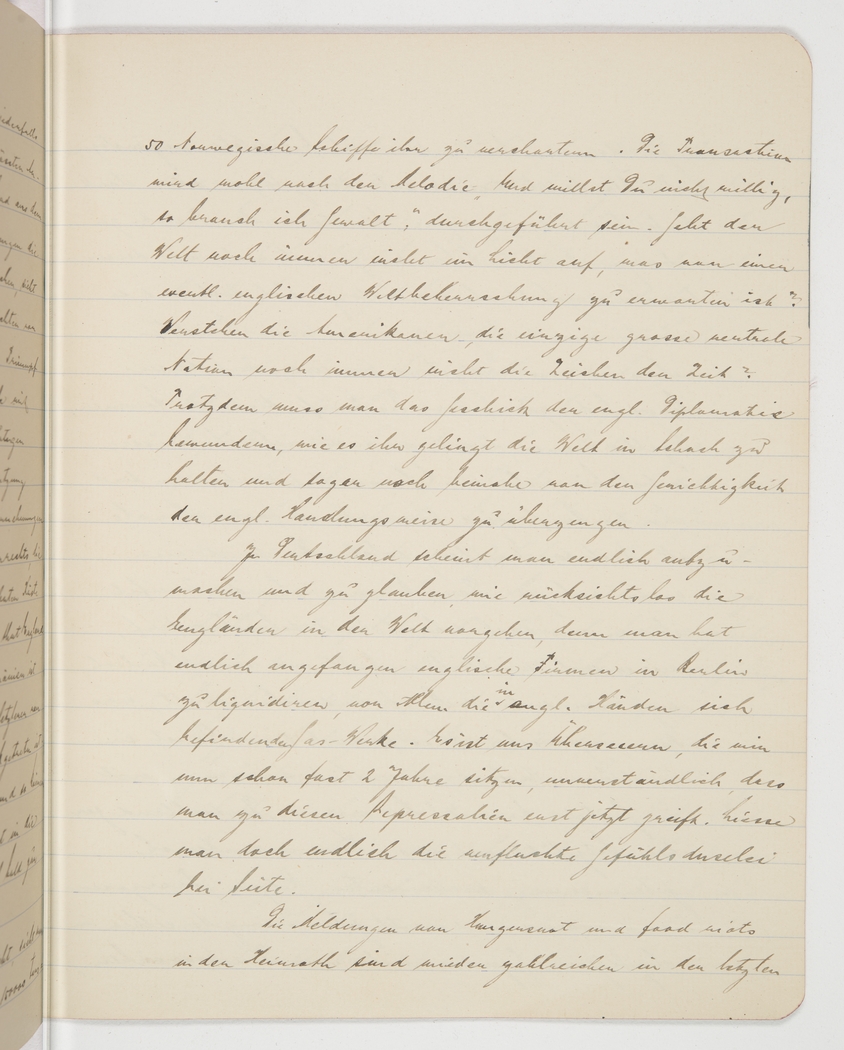 50 Norwegische Schiffe ihr zu verchartern. Die Transaktion
wird wohl nach der Melodie „Und willst Du nicht willig,
so brauch ich Gewalt," durchgeführt sein. Geht der
Welt noch immer nicht ein Licht auf, was von einer
eventl. englischen Weltbeherrschung zu erwarten ist?
Verstehen die Amerikaner, die einzige grosse neutrale
Nation noch immer nicht die Zeichen der Zeit?
Trotzdem muss man das Geschick der engl. Diplomatie
bewundern, wie es ihr gelingt die Welt in Schach zu
halten und sogar noch beinahe von der Gerichtigkeit
der engl. Handlungsweise zu überzeugen.
In Deutschland scheint man endlich aufzu-
wachen und zu glauben, wie rücksichtslos die
Engländer in der Welt vorgehen, denn man hat
endlich angefangen englische Firmen in Berlin
zu liquidiren, vor Allem die in engl. Händen sich
befindenden Gas-Werke. Es ist uns Überseeern, die wir
nun schon fast 2 Jahre sitzen, unverständlich, dass
man zu diesen Repressalien erst jetzt greift. Liesse
man doch endlich die verfluchte Gefühlsduselei
bei Seite.
Die Meldungen von Hungersnot und food riots
in der Heimath sind wieder zahlreicher in den letzten